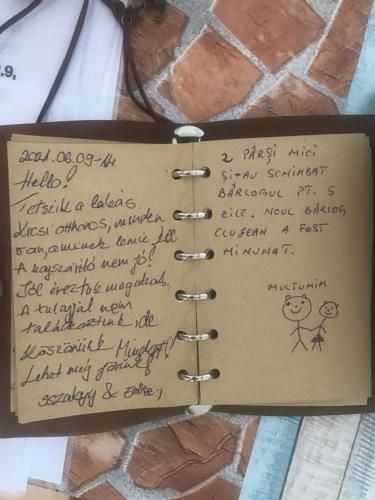 2.9,
2021.06.09-14.
Hello!
Tetszik a lakás.
Kicsi otthonos, minden
van, aminek lennie kell
A hajszárító nem jó!
Jól éreztük magunkat,
A tulajjal nem
találkoztunk, de
Köszönünk Mindent!
Lehet még jövünk!
&
2 PÂRȘI MICI
ȘI-AU SCHIMBAT
BÂRLOGUL PT. 5
ZILE. NOUL BÂRLOG
CLUJEAN A FOST
MINUNAT.
MULȚUMIM